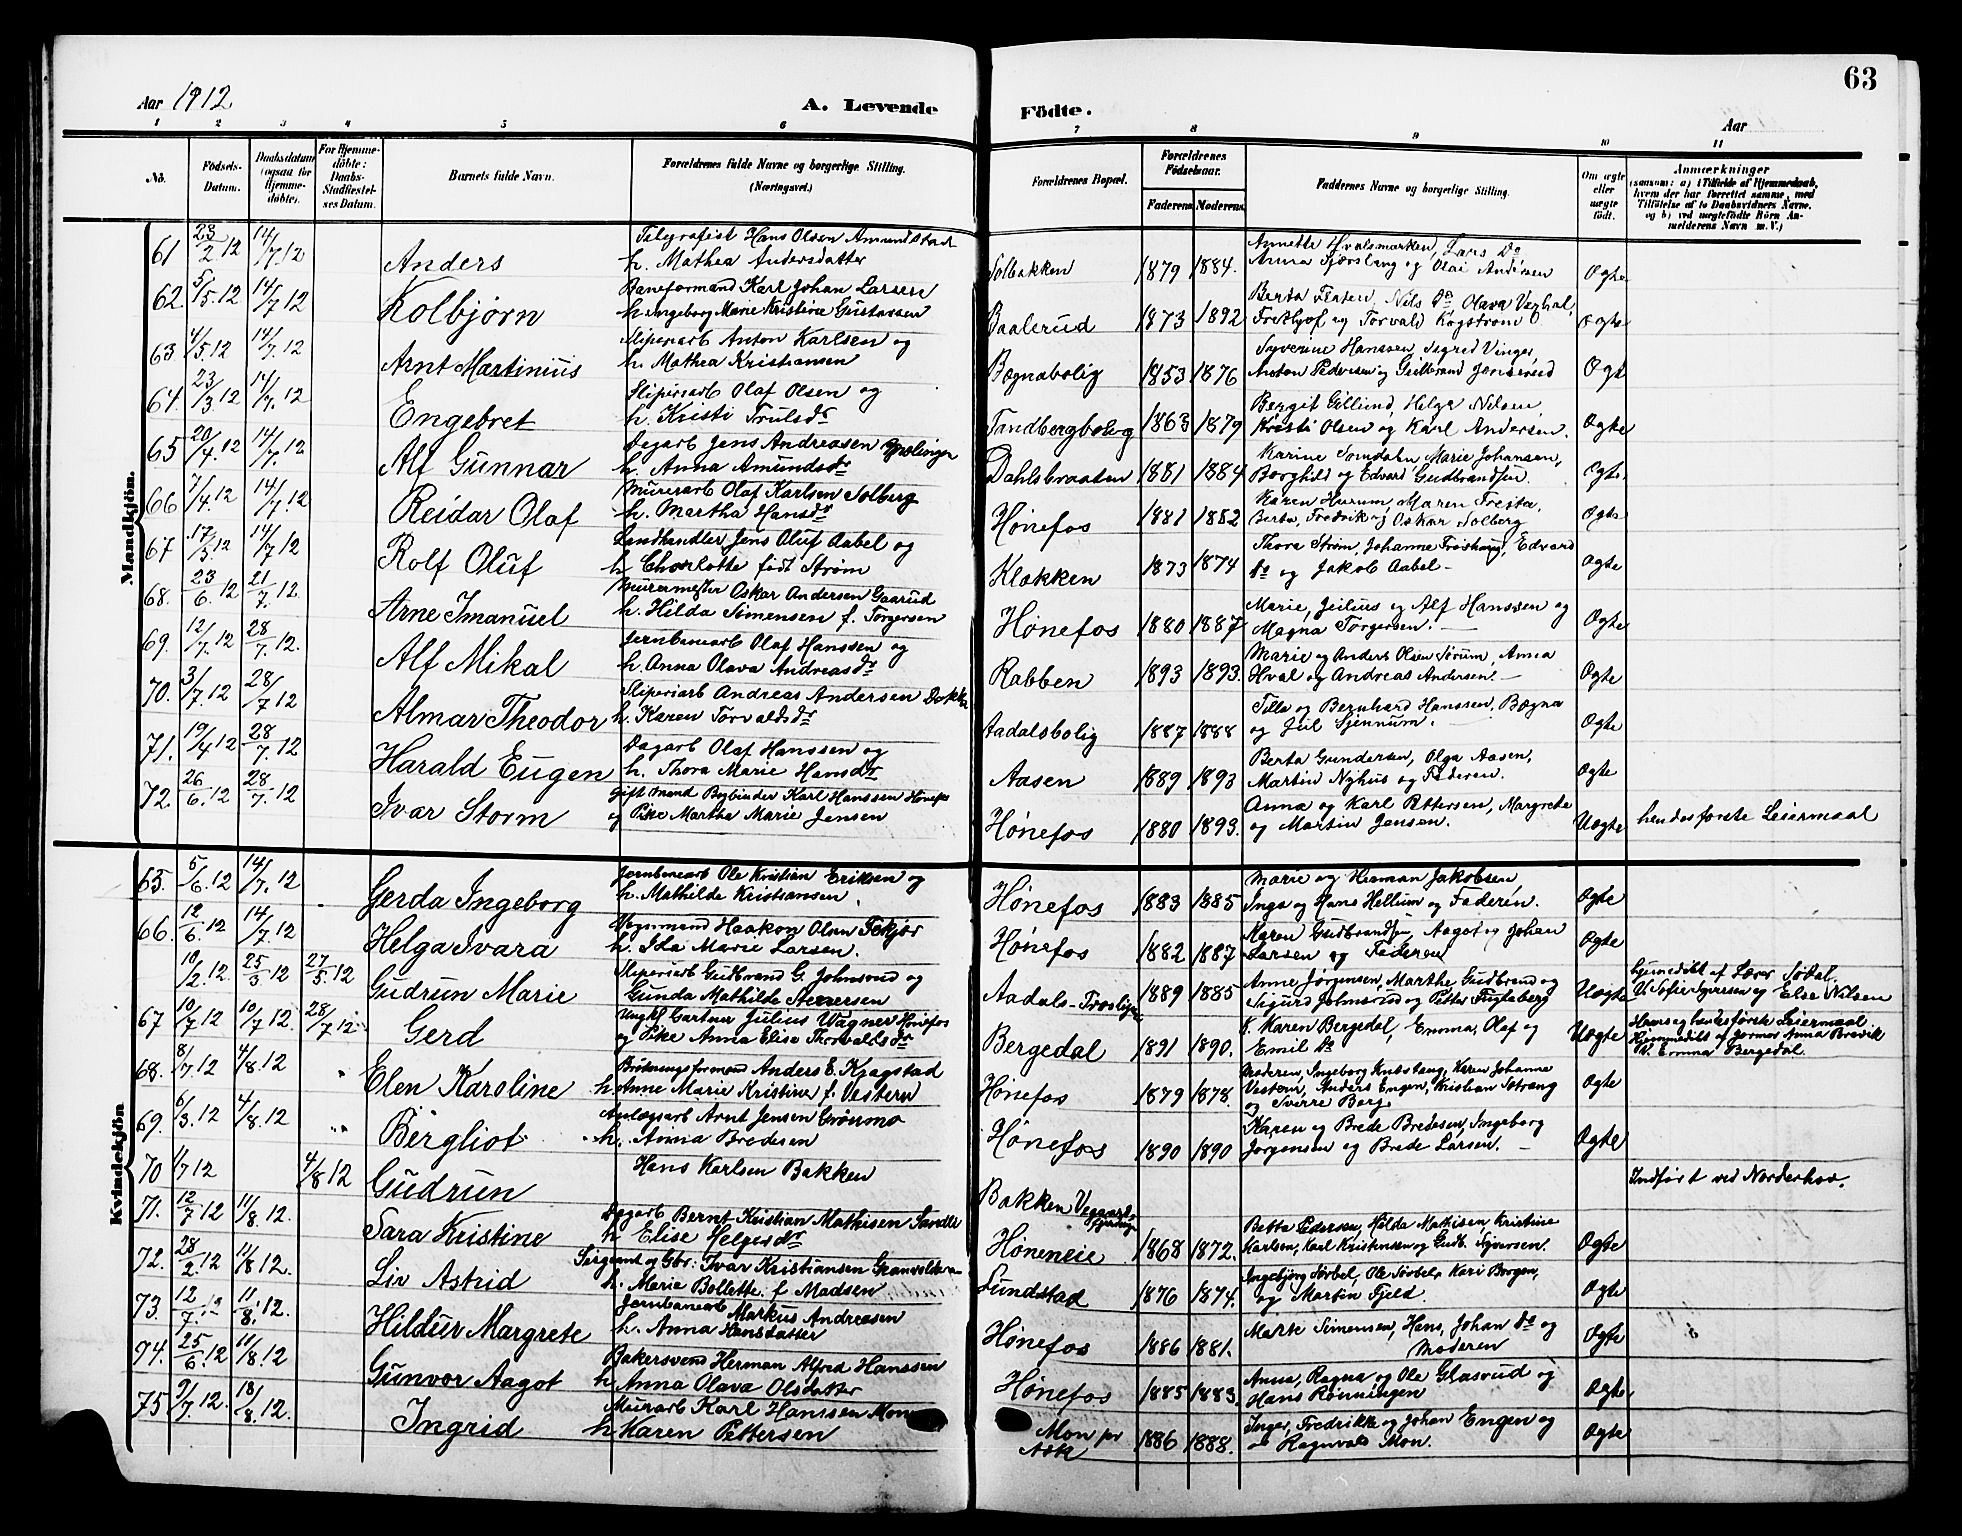 63
Aar 1912
A. Levende Födte.
Aar
1 2 3 4 5 6 7 8 9 10 11
No. Födsels-Datum. Daabsdatum (ogsaa for Hjemmedöbte). For Hjemmedöbte: Daabs-Stadfæstelses Datum. Barnets fulde Navn. Forældrenes fulde Navne og borgerlige Stilling. (Næringsvei.) Forældrenes Bopæl. Forældrenes Födselsaar. Faderens Moderens Faddernes Navne og borgerlige Stilling. Om ægte eller uægte födt. Anmærkninger (saasom: a) i Tilfælde af Hjemmedaab, hvem der har forrettet samme, med Tilföielse af to Daabsvidners Navne, og b) ved uægtefödte Börn Anmelderens Navn m. V.)
Mandkjön.
61 23/2 12 14/7.12 Anders Telegrafist Hans Olsen Amundstad h. Mathea Andersdatter Solbakken 1879 1884. Annette Hvalsmarken, Lars do Anna og Olai Andersen Ogte
62 5/5.12 14/7 12 Kolbjørn Baneformand Karl Johan Larsen h. Ingeborg Marie Kristine Gustavsen Baalerud 1873 1892 Berta Flaten, Nils do Olava Frethjof og Torvald Kogstrom Ogte
63 4/5.12 14/7.12 Arnt Martinius Sliperiarb Anton Karlsen og h. Mathea Kristiansen Bægnabolig 1853 1876 Syverine Hanssen, Sigred Vinger, Anton Pedersen og Gulbrand Ogt
64. 23/3.12 14/7.12 Engebret Sliperiarb Olaf Olsen og h. Kristi Trulsdr Tandbergbolig 1863 1879 Bergit Gillund, Helga Nilsen, Kristi Olsen og Karl Andersen. Ogte
65 20/4.12 14/7.12 Alf Gunnar Dagarb Jens Andreasen h. Anna Amundsdr Dahlsbraaten 1881 1884 Karine Marie Johansen, Borghild og Edvard Gudbrandsen. Ogte
66 7/4.12 14/7.12 Reidar Olaf Murerarb Olaf Karlsen Solberg h. Martha Hansdr Hønefos 1881 1882 Karen Hurum, Maren Berta, Fredrik og Oskar Solberg Ogte
67 17/5 12 14/7 12 Rolf Oluf Landhandler Jens Oluf Aabel og h Charlotte født Strøm Klækken 1873 1874 Thora Strøm, Johanne Edvard do og Jakob Aabel - Ogte
68. 23/6.12 21/7.12 Arne Imanuel Murermester Oskar Andersen Gaarud h. Hilda Simensen f. Torgersen Hønefos 1880 1887 Marie, Julius og Alf Hanssen og Magna Torgersen. Ogte
69. 12/7.12 28/7.12. Alf Mikal Jernbanearb Olaf Hanssen og h. Anna Olava Andreasdr Rabben 1893 1893. Marie og Anders Olsen Sørum, Anna Hval og Andreas Andersen. Ogte
70. 3/7.12 28/7 12 Almar Theodor Sliperiarb Andreas Andersen Dokka h. Karen Torvaldsdr Aadalsbolig 1887 1888 Tilla og Bernhard Hanssen, Bægna og Juul Sjennum. Ogte
71. 19/4 12 28/7.12 Harald Eugen Dagarb Olaf Hanssen og h. Thora Marie Hansdr Aasen 1889 1893 Berta Gundersen, Olga Aasen, Martin Nyhus og Faderen. Ogte
72. 26/6.12 28/7.12 Ivar Storm Gift mand Bogbinder Karl Hanssen Hønefos og Pike Martha Marie Jensen Hønefos 1880 1893. Anna og Karl Pettersen, Margrete og Martin Jensen. Uægte hendes første Leiermaal
Kvindekjön
65. 5/6.12 14/7.12 Gerda Ingeborg Jernbanearb Ole Kristian Eriksen og h. Mathilde Kristiansen. Hønefos 1883 1885 Marie og Herman Jakobsen, Inga og Hans Hellum og Faderen. Ogte
66. 12/6.12 14/7.12 Helga Ivara Vognmand Haakon Olsen Tekjør h. Ida Marie Larsen. Hønefos 1882 1887 Karen Gudbrandsen, Aagot og Johan Larsen og Faderen Ogte
10/2.12. 25/3 12 27/5.12 Gudrun Marie Sliperiarb Gudbrand G. Johnsrud og Gunda Mathilde Aadals- 1889 1885 Anne Jørgensen, Marthe Gudbrand og Sigurd Johnsrud og Petter Fugleberg Uægte hjemmedøbt af Lærer Sødal V. Sofie og Else Nilsen
67 10/7 12 10/7 12. 28/7 12 Gerd Ungkf Gartner Julius Wagner Hønefos og Pike Anna Elise Thorvaldsdr Bergedal 1891 1890. Karen Bergedal, Emma, Olaf og Emil do Uægte Hans og hendes første Leiermaal Hjemmedøbt af Jormor Anna Bredvik V. Emma Bergedal.
68. 8/7.12 4/8.12 " Elen Karoline Anders E. Kragstad h Anne Marie Kristine f. Vestern Hønefos 1879 1878. Moderen, Ingeborg Knæstang, Karen Johanne Vestern, Anders Engen, Kristian Strang og Sverre Berg. Ogte
69. 6/3.12 4/8.12 " Bergliot Anlægsarb Arnt Jensen Grønmo h. Anna Bredesen Hønefos 1890 1890 Karen og Brede Bredesen, Ingeborg Jørgensen og Brede Larsen. - Ogte
70 1/7 12 4/8 12 Gudrun Hans Karlsen Bakken Bakken Indført ved Norderhov.
71. 12/7 12 11/8.12. Sara Kristine Dagarb Bernt Kristian Mathisen Sandli h Elise Helgesdr Høneneie 1868 1872. Betta Pedersen, Hilda Mathisen, Kristine Karlsen, Karl Kristensen og Gudb. Syversen. Ogte
72. 28/2.12 11/8 12. Liv Astrid Sergeant og Gbr. Ivar Kristiansen h. Maria Bollette f. Madsen Lundstad 1876 1874. Ingebjørg Sørbel, Ole Sørbel, Kari Borgen, og Martin Fjeld. Ogte
73. 12/7.12 11/8.12. Hildur Margrete Jernbanearb Markus Andreasen h. Anna Hansdatter Hønefos 1886 1881. Marte Simensen, Hans, Johan do og Moderen Ogte
74. 25/6.12 11/8.12 Gunvor Aagot Bakersvend Herman Alfred Hanssen h Anna Olava Olsdatter Hønefos 1885 1883. Anna, Ragna og Ole Glasrud og Hans Rønningen Ogte
75 9/7.12. 18/8.12. Ingrid Murarb Karl Hanssen Mon h Karen Pettersen Mon pr Ask 1886 1888. Inga, Fredrikke og Johan Engen og Ragnvald Mon. Ogte